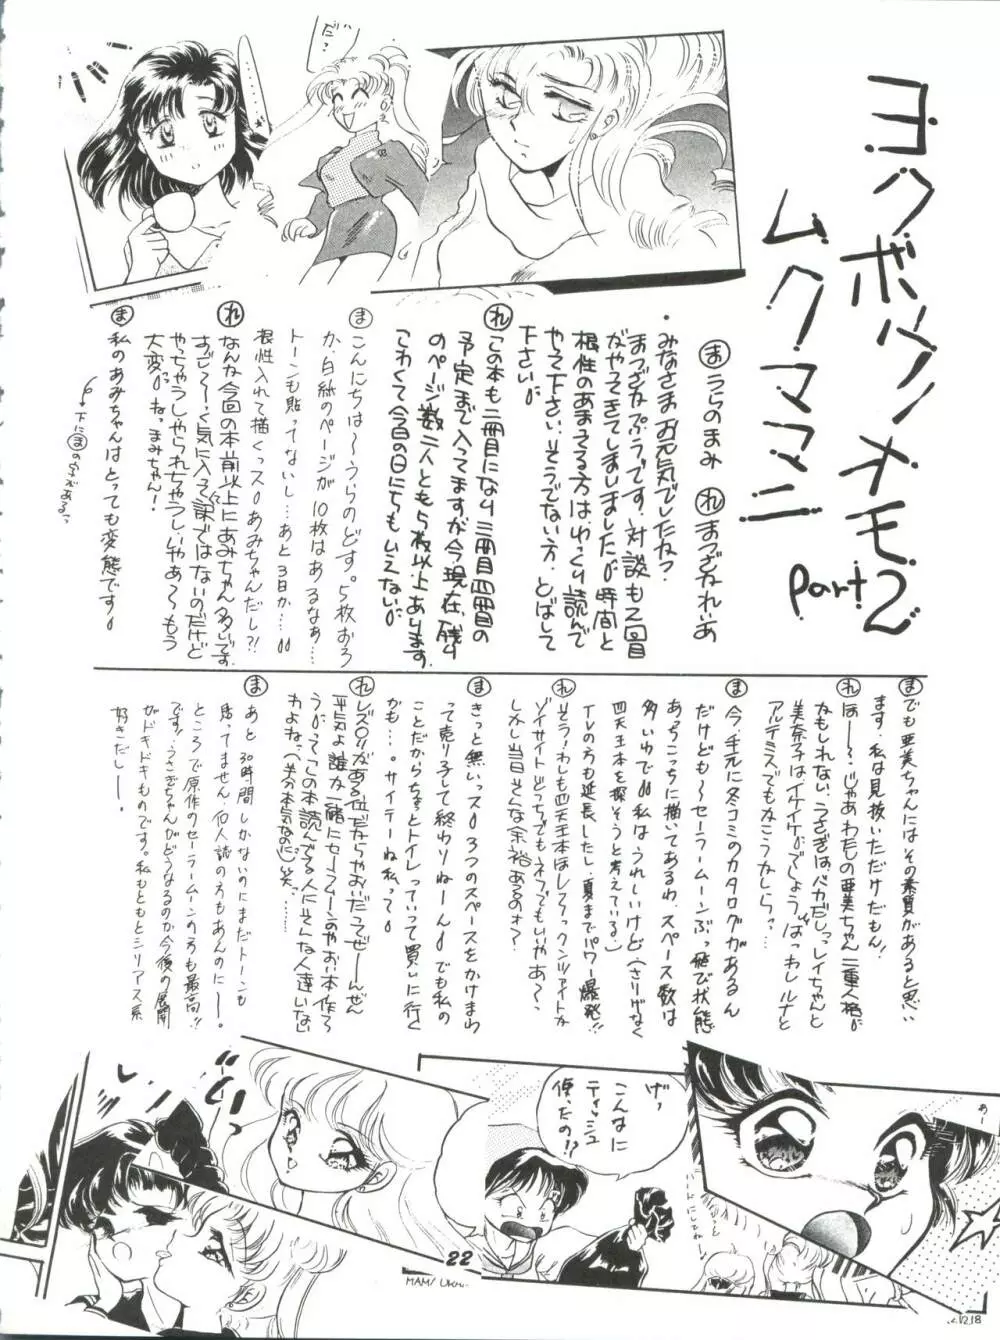 ヨクボウノメモ
ムクママニ
part 2
だ?
・㋮うらのまみ ㋹まつざかれいあ
みなさまお元気でしたね?
まつざかぷぅです。対談も2回目
がやってきてしまいました。時間と
根性のあまる方はゆっくり読んで
やって下さい…そうでない方、とばして
下さい。
㋹この本も二冊目になり三冊目四冊目の
予定まで入ってますが今、現在、残り
のページ数二人とも5枚以上あります。
こわくて今日の日にちもいえない。
㋮こんにちは〜うらのどす。5枚おろ
か、白紙のページが10枚はあるなぁ…
トーンも貼ってないし…あと3日か…
根性入れて描くっス!あみちゃんだし?!
㋹なんか今回の本前以上にあみちゃん多いです。
すご〜く気に入って訳ではないのだけど
やっちゃうしやられちゃうし、いやぁ〜もう
大変。ねっまみちゃん!
㋮私のあみちゃんはとっても変態です
下に㋮の字がある
㋮でも亜美ちゃんにはその素質があると思い
ます。私は見抜いただけだもん!
㋹はぁ〜〜?じゃあわたしの亜美ちゃん二重人格
かもしれない、うさぎはバカだしっレイちゃんと
美奈子はイケイケでしょう ばっわしルナと
アルテミスでもかこうかしらっ…
㋮今、手元に冬コミのカタログがあるん
だけども〜セーラームーンぶっ飛び状態
あっちこっちに描いてあるわ、スペース数は
多いわで 私はうれしいけど(さりげなく
四天王本を探そうと考えている)
TVの方も延長したし、夏までパワー爆発!!
㋹そう!わしも四天王本ほしくてっクンツァイトか
ゾイサイトどっちでもネフでもいいやぁ〜、
しかし当日そんな余裕あるのか?
㋮きっと無いっス 3つのスペースをかけまわ
って売り子して終わりねーん でも私の
ことだからちょっとトイレっていって買いに行く
かも…サイテーね私って
㋹レズ○○がある位だからやおいだってぜーんぜん
平気よ誰か一緒にセーラームーンのやおい本作ろ
う って この本読んでる人にそんな人達いない
わよねっ(半分本気なのに)笑っ……
㋮あと30時間しかないのにまだトーンも
貼ってません、他人誌の方もあんのにー。
ところで原作のセーラームーンの方も最高!!
です! うさぎちゃんがどうなるのか今後の展開
がドキドキものです。私もともとシリアス系
好きだしー。
げっ
こんなに
ティッシュ
使ったの!?
あー
もっと
ハードにしてね
22
MAMI URA
2.12.18